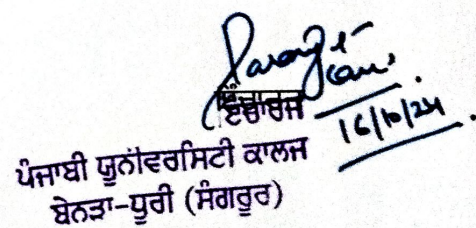 ਇੰਚਾਰਜ
16/10/24
ਪੰਜਾਬੀ ਯੂਨੀਵਰਸਿਟੀ ਕਾਲਜ
ਬੇਨੜਾ-ਧੂਰੀ (ਸੰਗਰੂਰ)